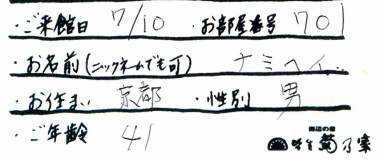 ・ご来館日 7/10 ・お部屋番号 701
・お名前(ニックネームでも可) ナミヘイ
・お住まい 京都 ・性別 男
・ご年齢 41
海辺の宿